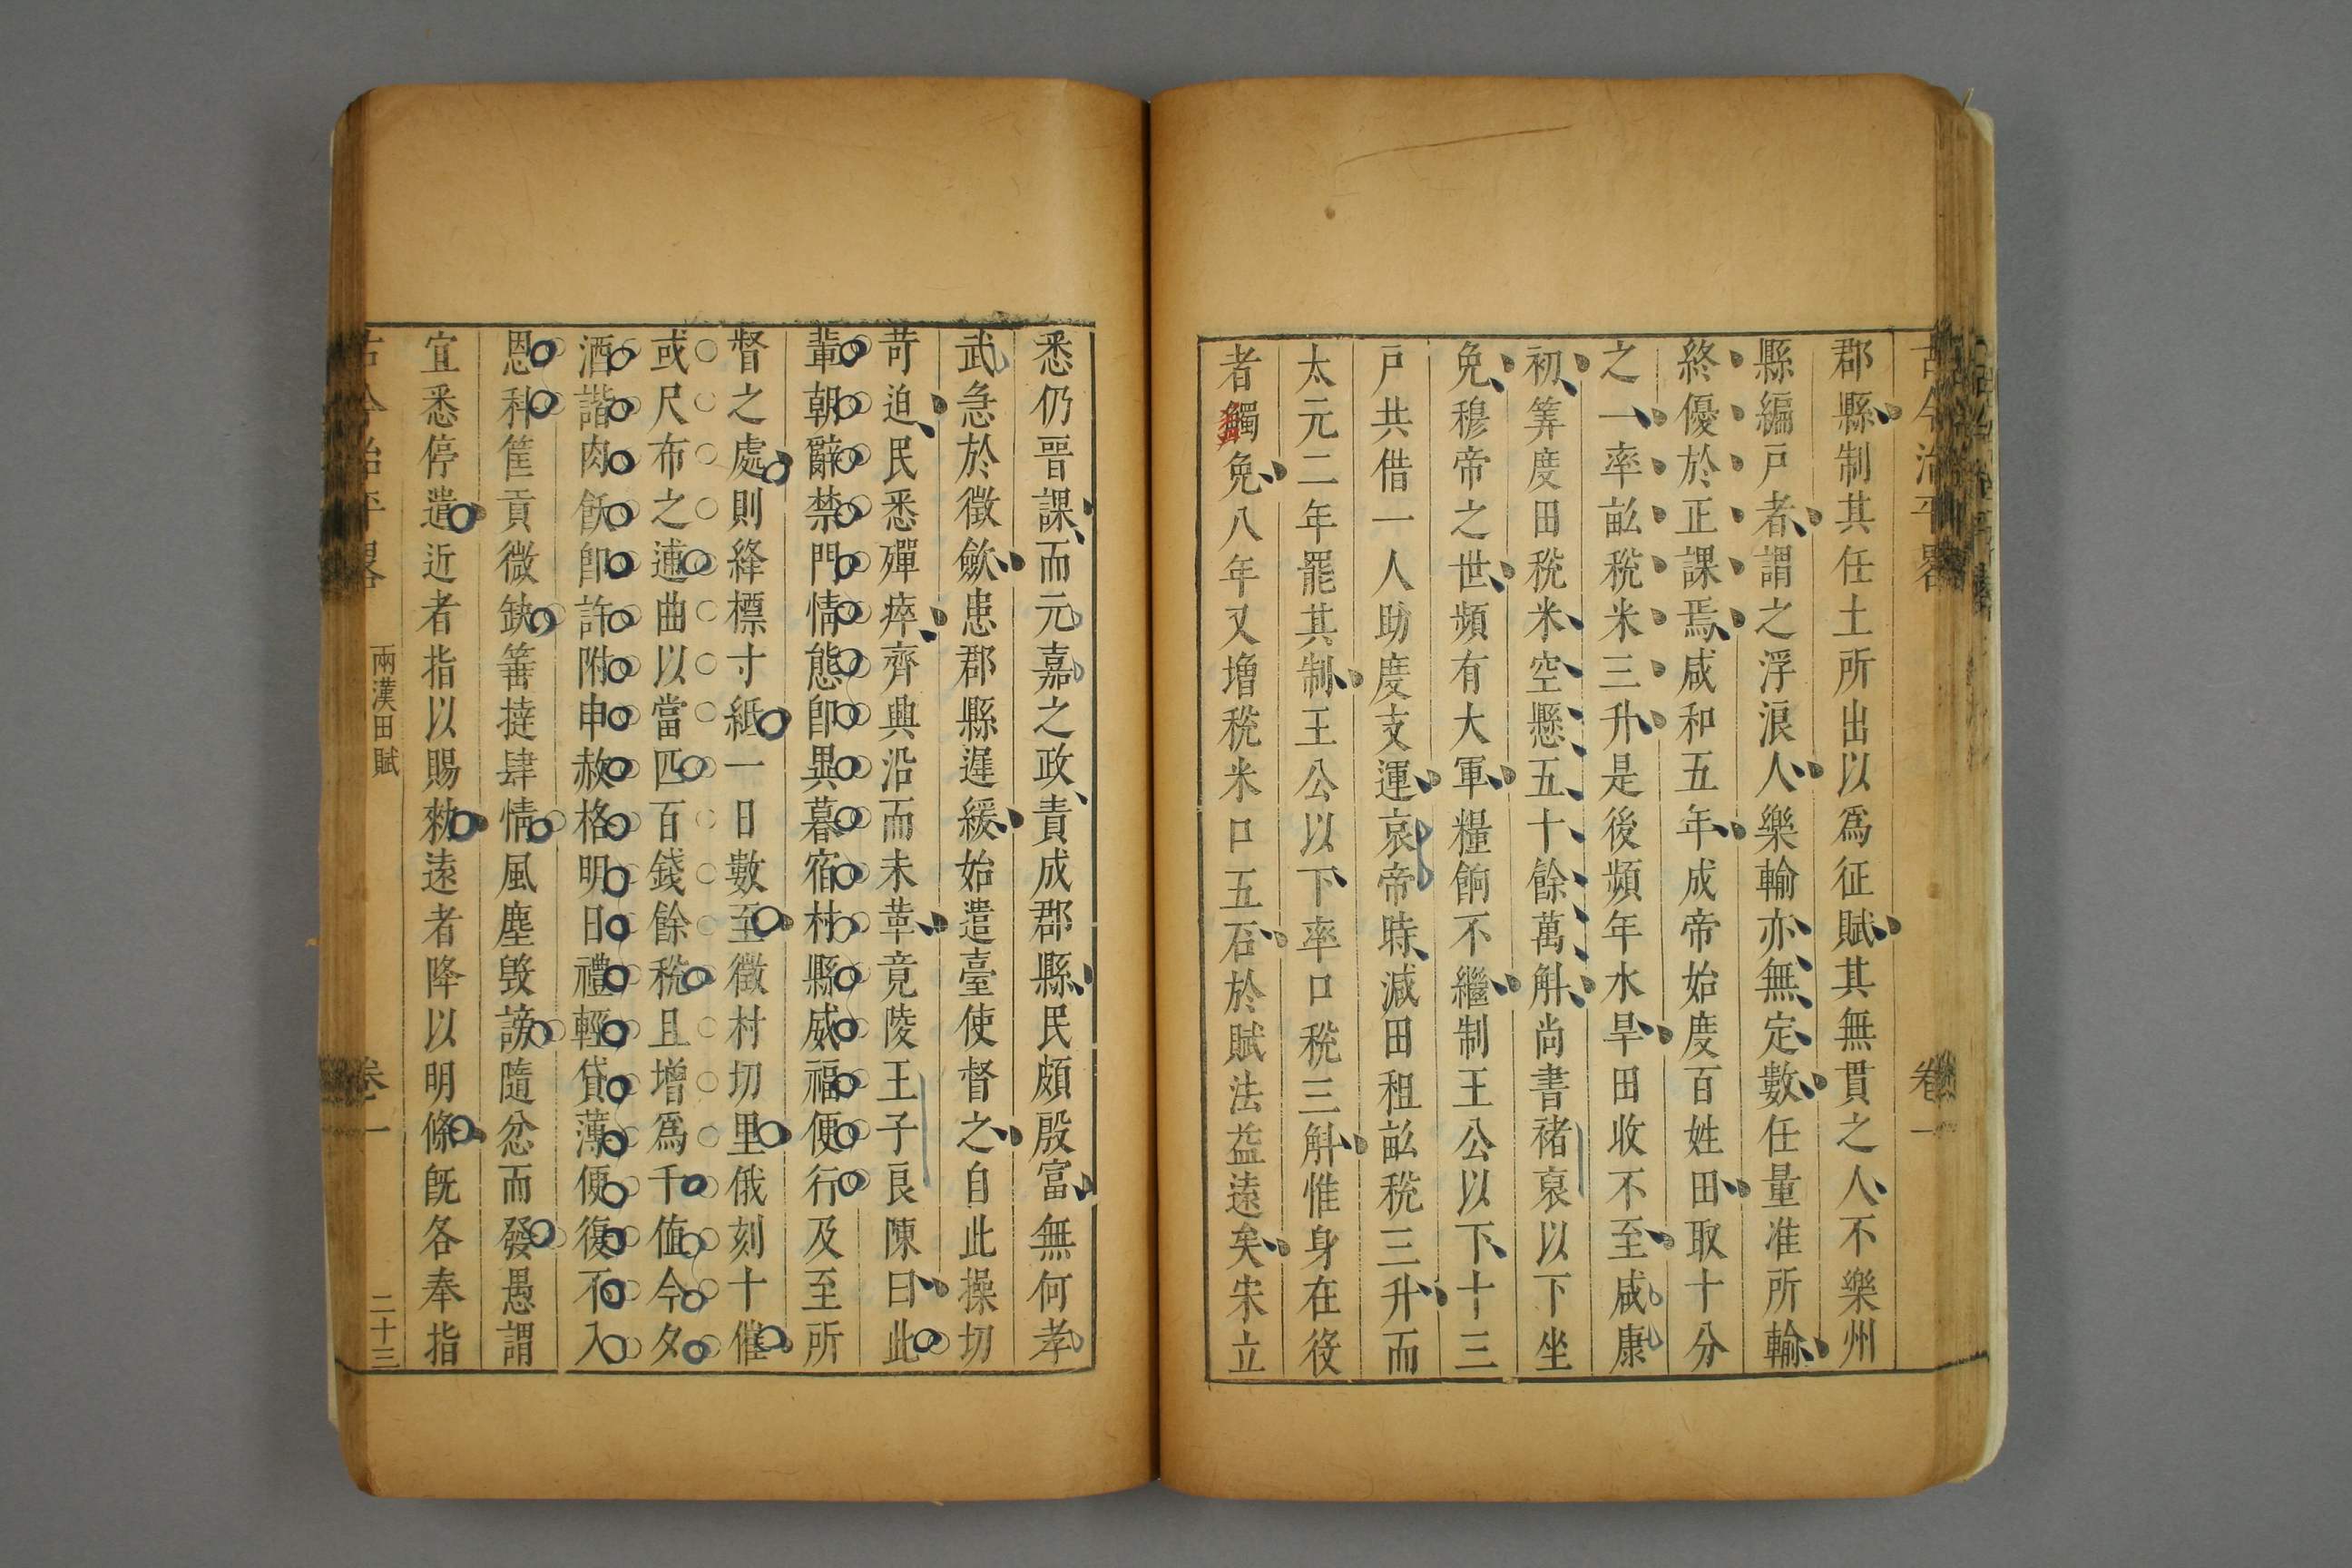 古今治平畧 卷一
郡縣制其任土所出以爲征賦其無貫之人不樂州
縣編戸者謂之浮浪人樂輸亦無定數任量准所輸
終優於正課焉咸和五年成帝始度百姓田取十分
之一率畝稅米三升是後頻年水旱田收不至咸康
初筭度田稅米空懸五十餘萬斛尚書禇裒以下坐
免穆帝之世頻有大軍糧餉不繼制王公以下十三
戸共借一人助度支運哀帝時減田租畝稅三升而
太元二年罷其制王公以下率口稅三斛惟身在役
者蠲免八年又增稅米口五石於賦法益遠矣宋立
悉仍晉課而元嘉之政責成郡縣民頗殷富無何孝
武急於徵歛患郡縣遲緩始遣臺使督之自此操切
苛迫民悉殫瘁齊興沿而未革竟陵王子良陳曰此
輩朝辭禁門情態卽異暮宿村縣威福便行及至所
督之處則絳標寸紙一日數至徵村切里俄刻十催
或尺布之逋曲以當匹百錢餘稅且增爲千値今夕
酒諧肉飫卽許附申赦格明日禮輕貸薄便復不入
恩科筐貢微缺箠撻肆情風塵毀謗隨忿而發愚謂
宜悉停遣近者指以賜敕遠者降以明條旣各奉指
古今治平畧 兩漢田賦 卷一 二十三